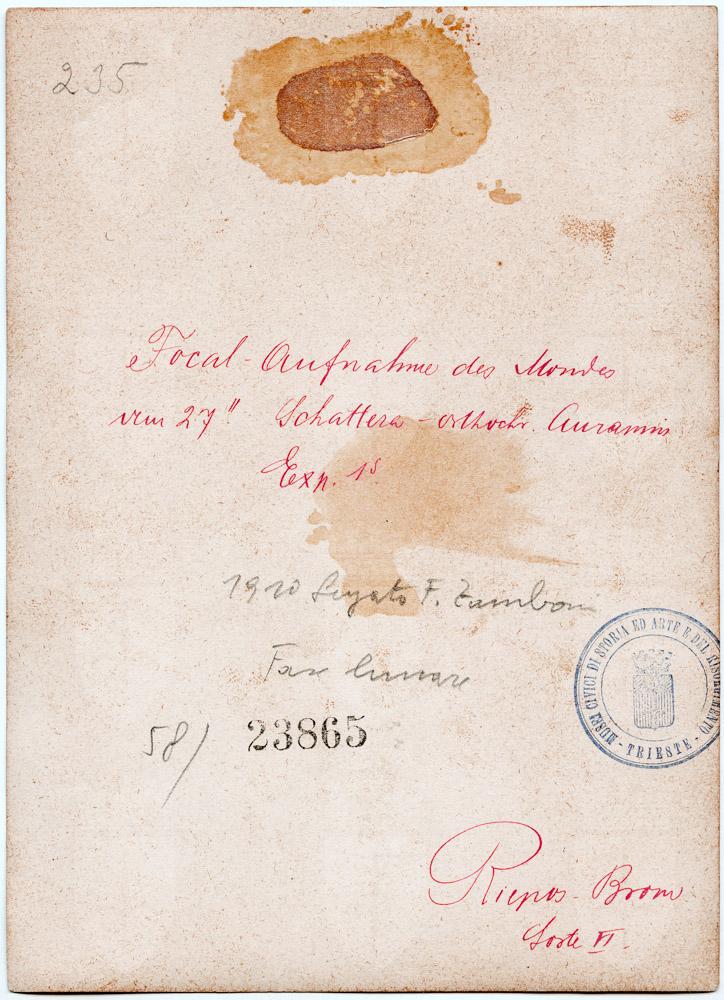 235
Focal-Aufnahme des Mondes
vom 27" Schattera-orthochr. Auramin
Exp. 1s
1910 F. Zamboni
Fase lunare
58/ 23865
MUSEI CIVICI DI STORIA ED ARTE E DEL RISORGIMENTO - TRIESTE -
Riepos-Brom
Sorte VI.